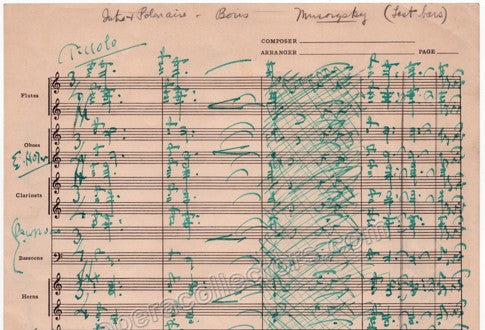 Intro + Polonaise - Boris Musorgsky (Last bars)
COMPOSER
ARRANGER PAGE
Piccolo
Flutes
Oboes
E. Horn
Clarinets
Bassoons
Horns
operacollectors.com